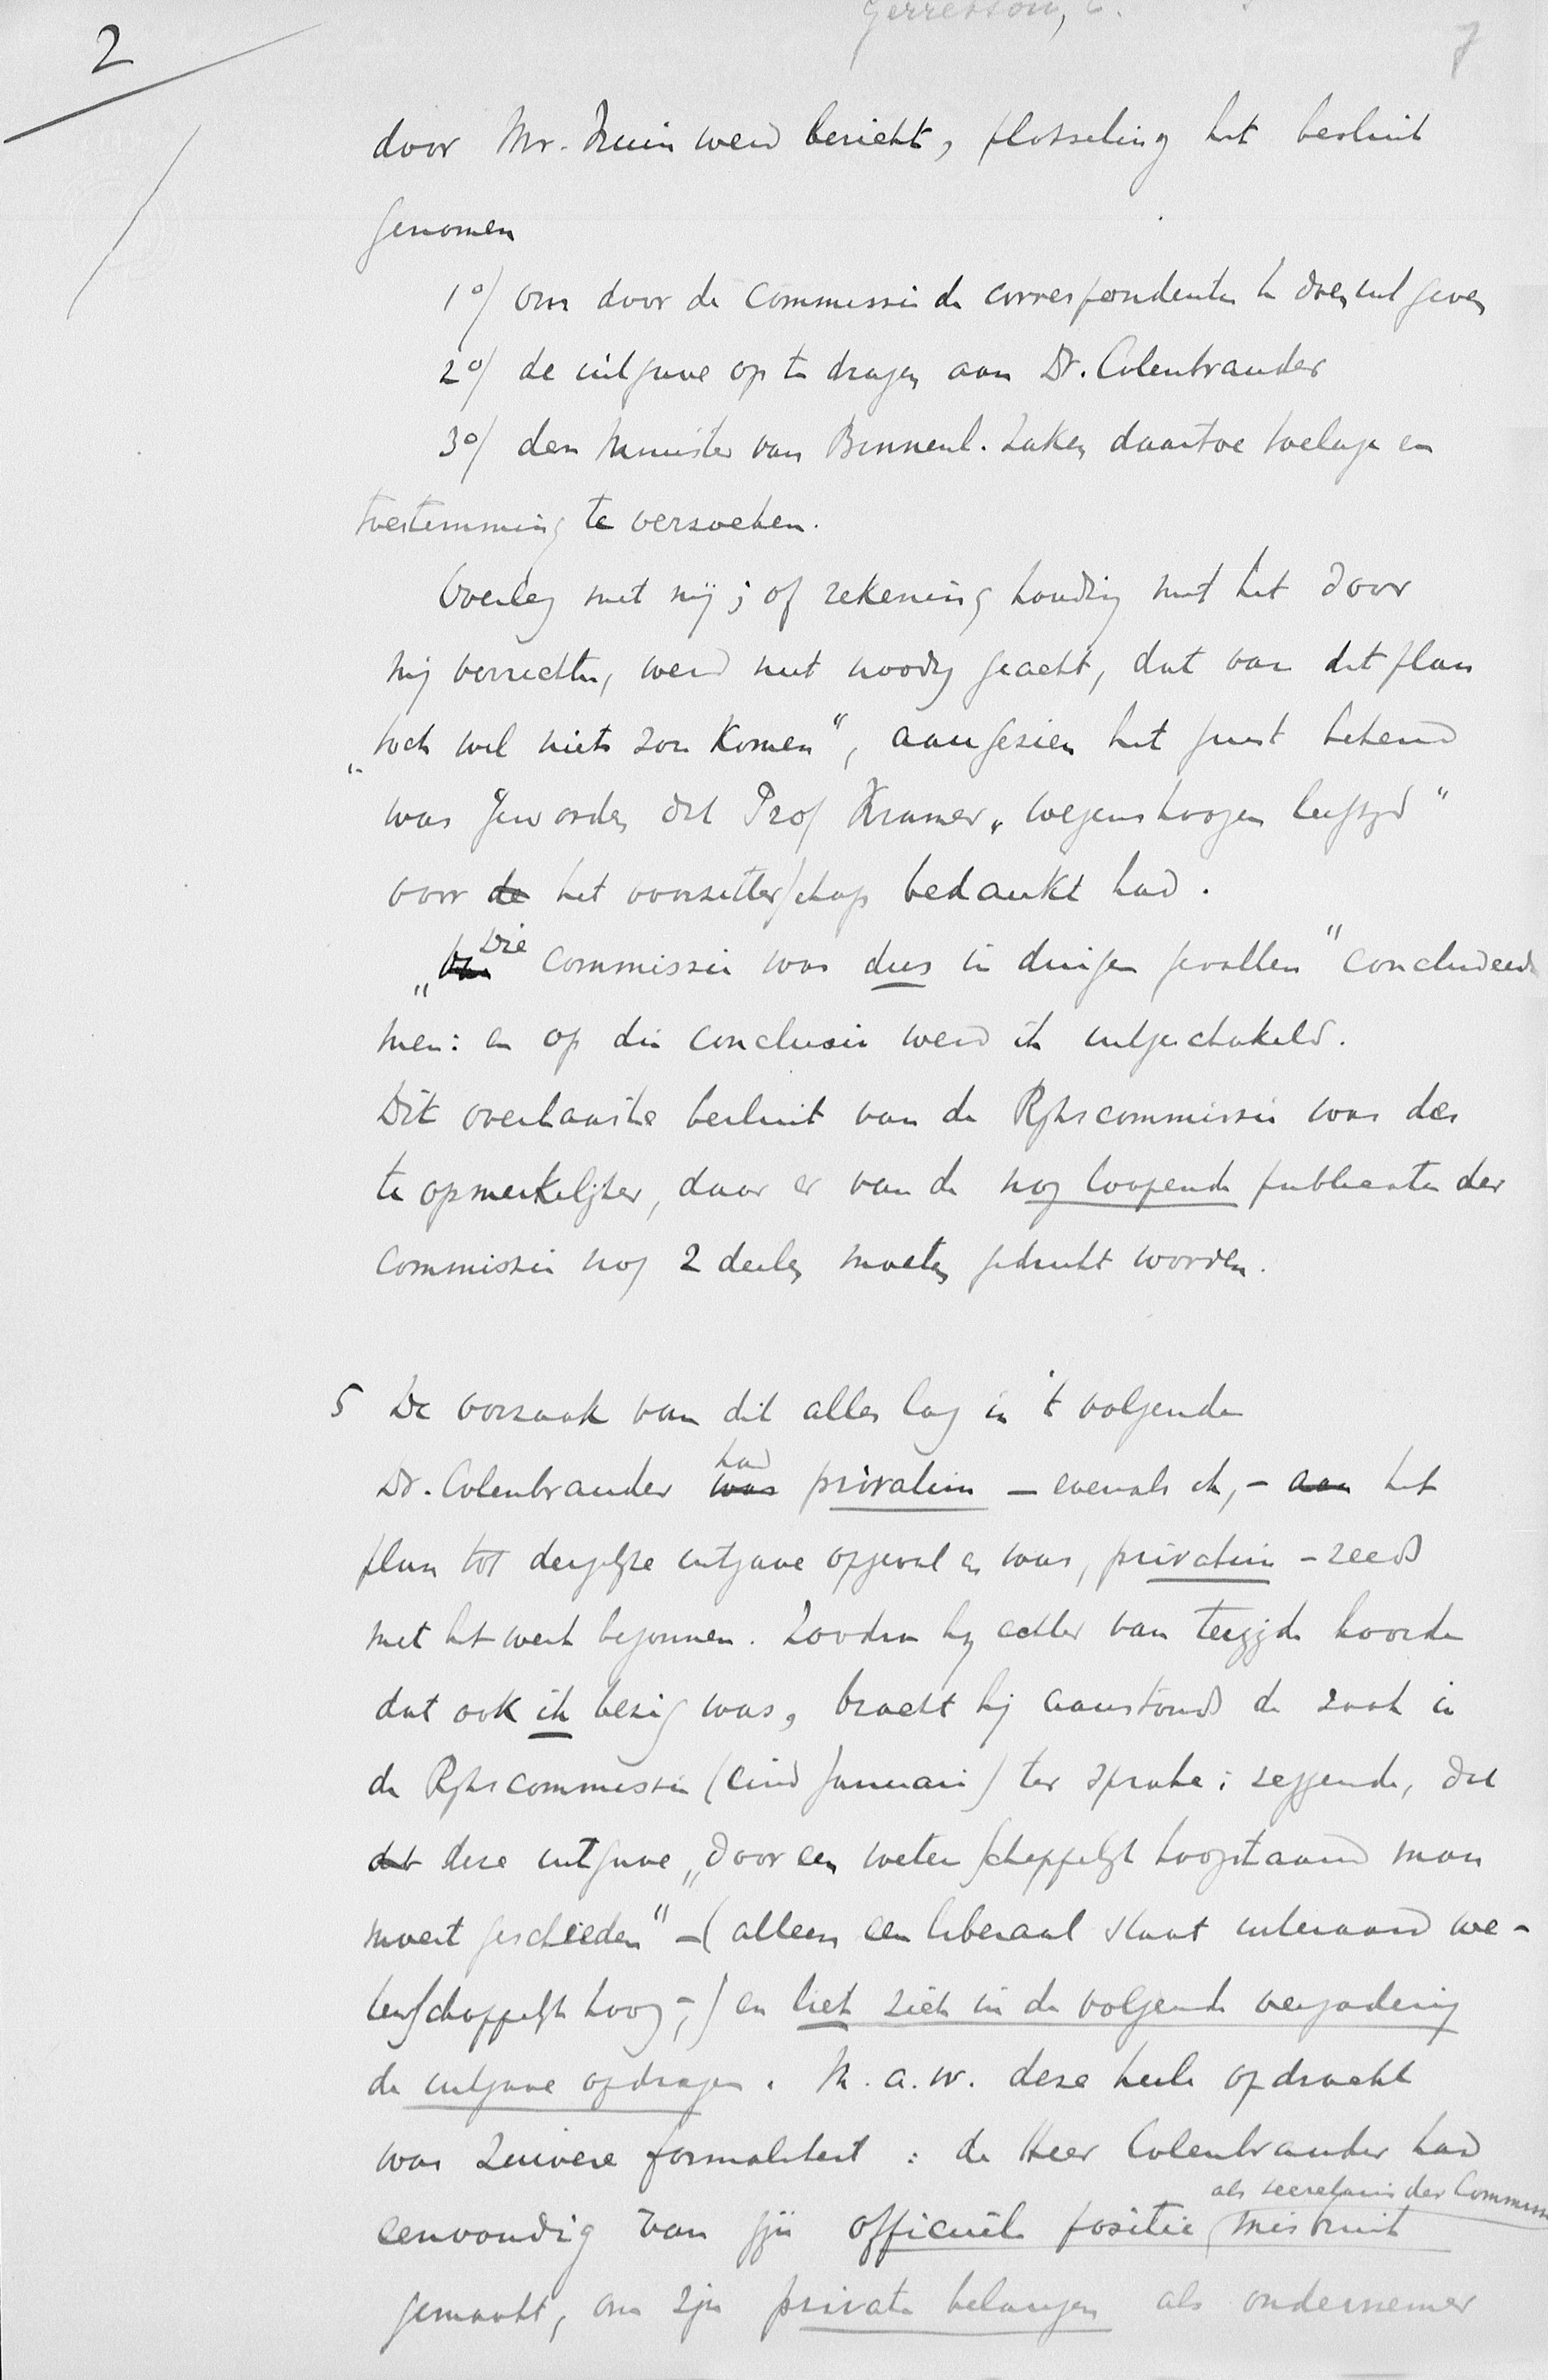 Gerretson, C.
2
7
door Mr. Fruin werd bericht, plotseling het besluit
genomen
1o/ om door de Commissie de correspondentie te doen uitgeven
2o/ de uitgave op te dragen aan Dr. Colenbrander
3o/ den Minister van Binnenl. Zaken daartoe toelage en
toestemming te verzoeken.
Overleg met mij; of rekening houding met het door
mij verrichte, werd niet noodig geacht, dat van dit plan
„toch wel niets zou komen", aangezien het juist bekend
was geworden dat Prof Kramer „wegens hoogen leeftijd"
voor de het voorzitterschap bedankt had.
„Die commissie was dus in duigen gevallen" concludeerde
men: en op die conclusie werd ik uitgeschakeld.
Dit overhaaste besluit van de Rijkscommissie was des
te opmerkelijker, daar er van de nog loopende publicatie der
Commissie nog 2 deelen moeten gedrukt worden.
5 De oorzaak van dit alles lag in 't volgende
Dr. Colenbrander was had privatim – evenals ik, – aan het
plan tot dergelijke uitgave opgevat en was, privatim – reeds
met het werk begonnen. Zoodra hij echter van terzijde hoorde
dat ook ik bezig was, bracht hij aanstonds de zaak in
de Rijkscommissie (eind Januari) ter sprake; zeggende, dat
dat deze uitgave „door een wetenschappelijk hoogstaand man
moest geschieden" – (alleen een liberaal staat uiteraard we-
tenschappelijk hoog –;) en liet zich in de volgende vergadering
de uitgave opdragen. M.a.w. deze heele opdracht
was zuivere formaliteit: de Heer Colenbrander had
als secretaris der Commissie
eenvoudig van zijn officieele positie misbruik
gemaakt, om zijn private belangen als ondernemer